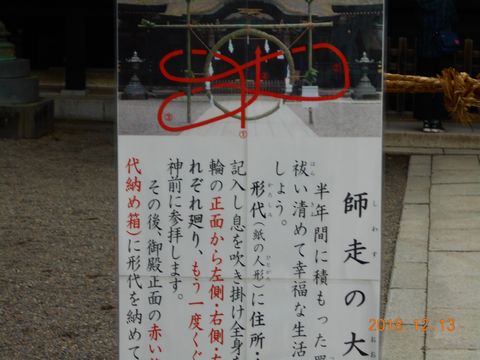 師走の大
半年間に積もった罪
祓い清めて幸福な生活
しょう。
形代(紙の人形)に住所・
記入し息を吹き掛け全身
輪の正面から左側・右側・左
れぞれ廻り、もう一度くぐ
神前に参拝します。
その後、御殿正面の赤い
代納め箱)に形代を納めて
①
2010.12.13